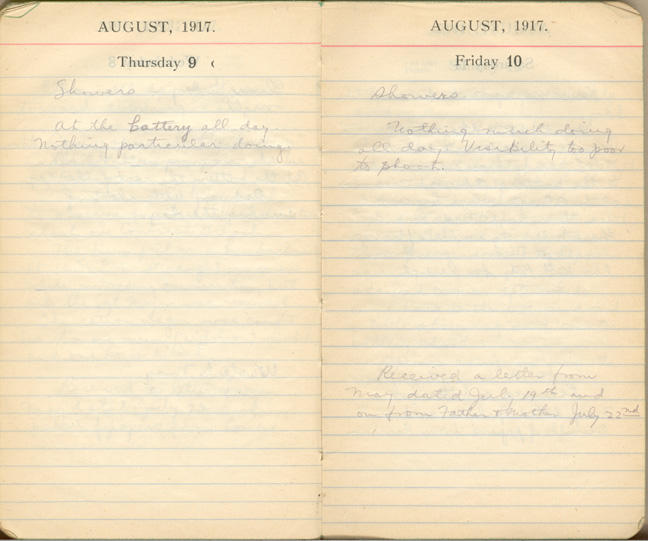 AUGUST, 1917.
Thursday 9
Showers
At the battery all day.
Nothing particular doing.
AUGUST, 1917.
Friday 10
Showers
Nothing much doing
all day. Visibility too poor
to shoot.
Received a letter from
May dated July 19th and
one from Father & Mother July 22nd